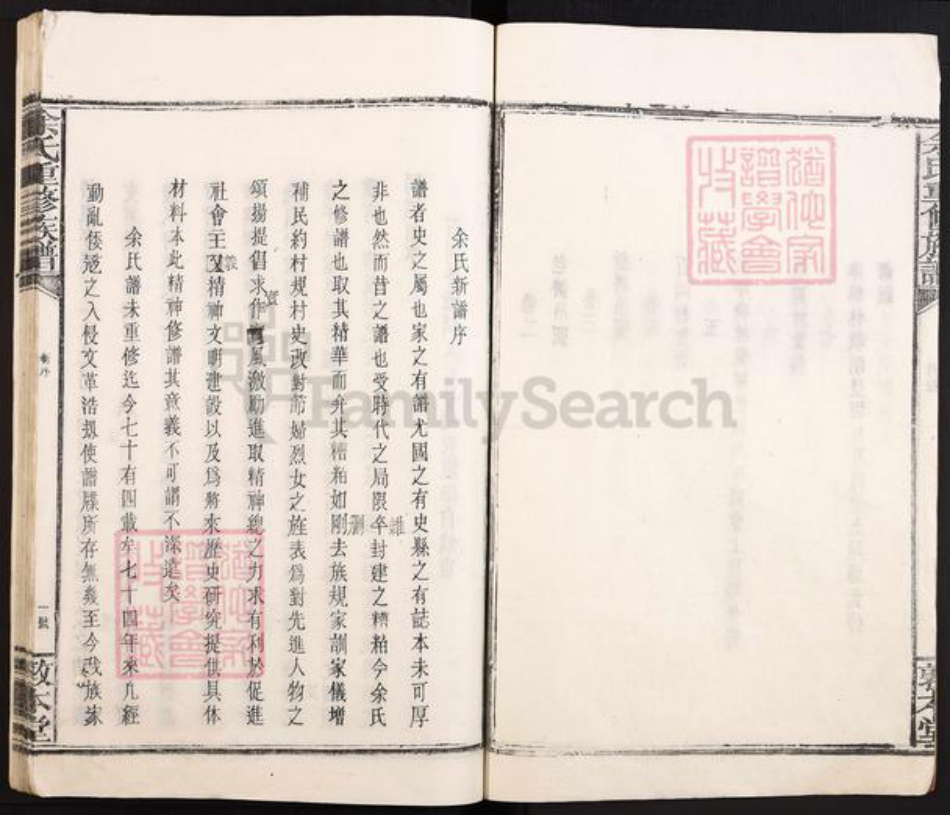 余氏新譜序
譜者史之屬也家之有譜尤國之有史縣之有誌本未可厚
非也然而昔之譜也受時代之局限難卒封建之糟粕今余氏
之修譜也取其精華而弁其糟粕如刪剛去族規家訓家儀增
補民約村規村史改對節婦烈女之旌表爲對先進人物之
頌揚提倡求作實風激励進取精神總之力求有利於促進
社會主义義精神文明建設以及爲將來歷史研究提供具体
材料本此精神修譜其意義不可謂不深遠矣
余氏譜未重修迄今七十有四載矣七十四年來几經
動亂倭冦之入侵文革浩刼使譜牒所存無幾至今我族家
余氏重修族譜
卷序
一號
敦本堂
余氏重修族譜
敦本堂
猶他家
譜學會
收藏
猶他家
譜學會
收藏
FamilySearch